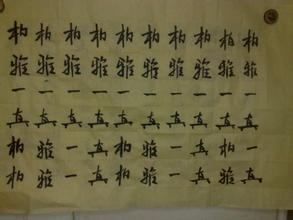 柏柏柏柏柏柏柏柏柏柏
雅雅雅雅雅雅雅雅雅雅
一一一一一一一一一一
直直直直直直直直直直
柏雅一直柏雅一直柏一
柏雅一直柏雅一直雅直